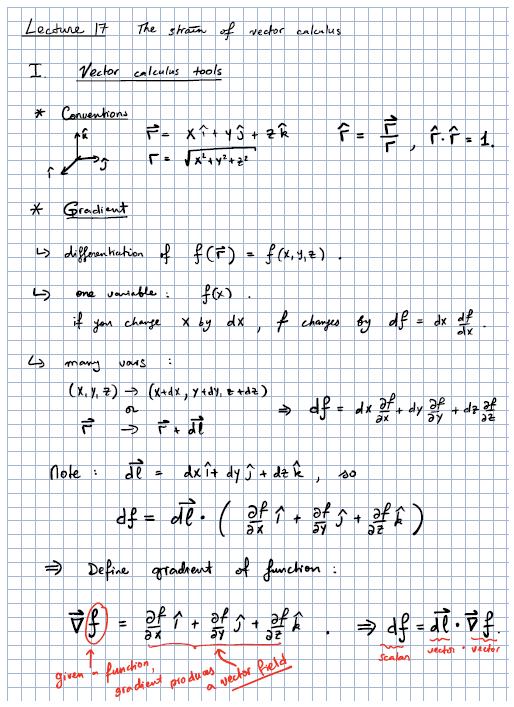 Lecture 17 The strain of vector calculus
I. Vector calculus tools
* Conventions
k̂ ĵ î
r⃗ = x î + y ĵ + z k̂ r̂ = r⃗/r , r̂·r̂ = 1.
r = √(x²+y²+z²)
* Gradient
↳ differentiation of f(r⃗) = f(x,y,z).
↳ one variable : f(x).
if you change x by dx, f changes by df = dx df/dx.
↳ many vars :
(x,y,z) → (x+dx, y+dy, z+dz)
or
r⃗ → r⃗ + dl⃗ ⇒ df = dx ∂f/∂x + dy ∂f/∂y + dz ∂f/∂z
Note : dl⃗ = dx î + dy ĵ + dz k̂, so
df = dl⃗ · ( ∂f/∂x î + ∂f/∂y ĵ + ∂f/∂z k̂ )
⇒ Define gradient of function :
∇⃗f = ∂f/∂x î + ∂f/∂y ĵ + ∂f/∂z k̂ . ⇒ df = dl⃗ · ∇⃗f.
scalar vector · vector
given a function,
gradient produces a vector field